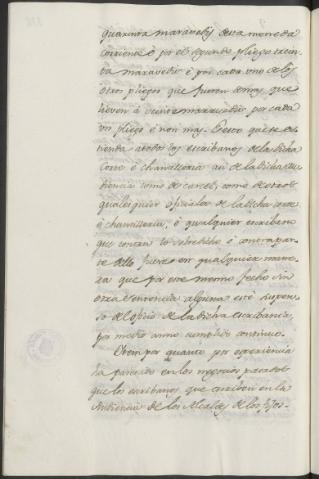 quarenta maravedis desta moneda
corriente é por el segundo pliego trein-
ta maravedis é por cada uno de los
otros pliegos que fueren demas que
lieven á veinte maravedis por cada
un pliego é non mas. Pero que se es-
tienda á todos los escribanos de la dicha
Corte é chancilleria asi de la dicha au-
diencia como de carcel, como de otros
qualesquier oficiales de la dicha corte
é chancilleria, é qualquier escribano
que contra lo sobredicho é contra par-
te dello fuere en qualquiera mane-
ra que por ese mesmo fecho sin
otra sentencia alguna esté suspen-
so del oficio de la dicha escribania,
por medio anno cumplido continuo.
Otrosi por quanto por esperiencia
ha parecido en los negocios pasados
que los escribanos que escriben en la
Audiencia de los Alcaldes de los fijos-